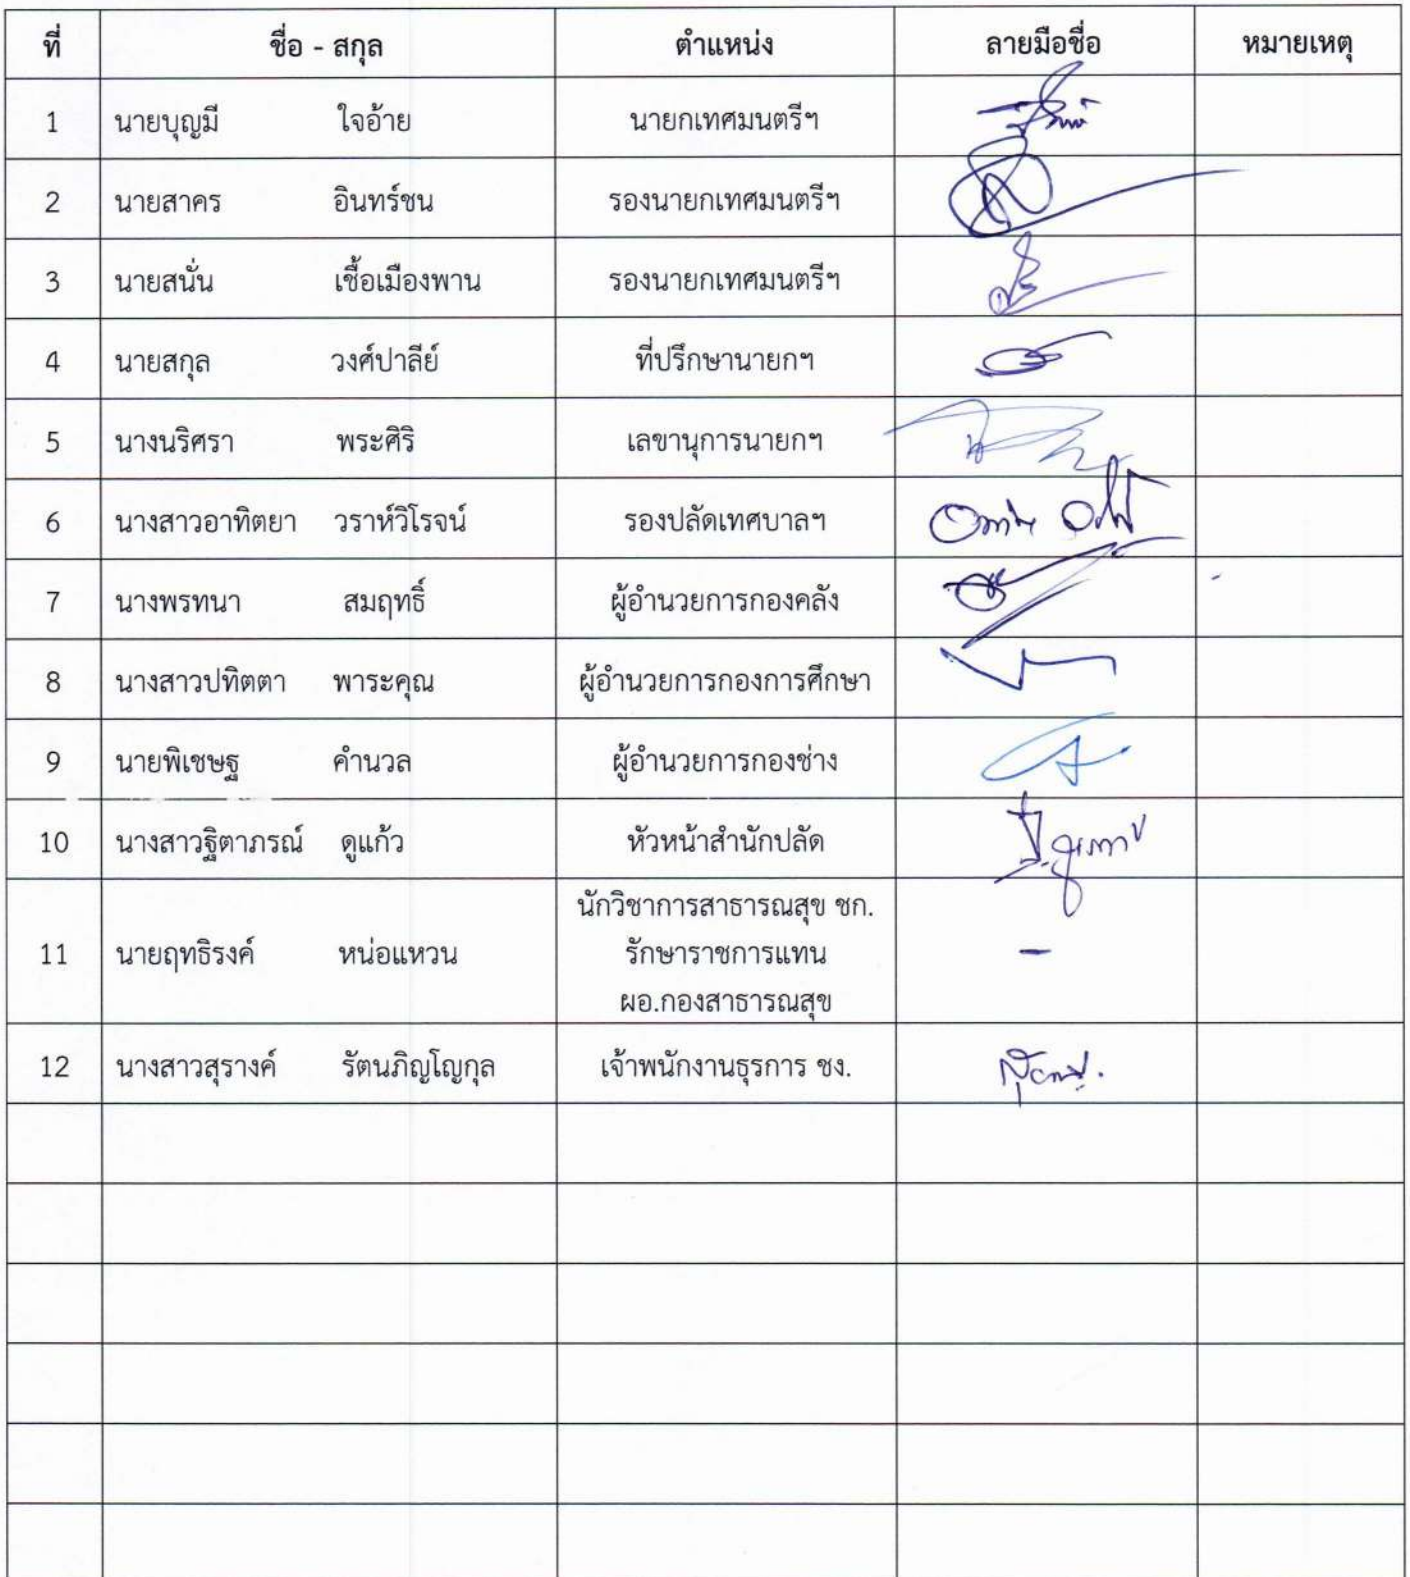 ที่ ชื่อ - สกุล ตำแหน่ง ลายมือชื่อ หมายเหตุ
1 นายบุญมี ใจอ้าย นายกเทศมนตรีฯ
2 นายสาคร อินทร์ชน รองนายกเทศมนตรีฯ
3 นายสนั่น เชื้อเมืองพาน รองนายกเทศมนตรีฯ
4 นายสกุล วงศ์ปาลีย์ ที่ปรึกษานายกฯ
5 นางนริศรา พระศิริ เลขานุการนายกฯ
6 นางสาวอาทิตยา วราห์วิโรจน์ รองปลัดเทศบาลฯ
7 นางพรทนา สมฤทธิ์ ผู้อำนวยการกองคลัง
8 นางสาวปทิตตา พาระคุณ ผู้อำนวยการกองการศึกษา
9 นายพิเชษฐ คำนวล ผู้อำนวยการกองช่าง
10 นางสาวฐิตาภรณ์ ดูแก้ว หัวหน้าสำนักปลัด
นักวิชาการสาธารณสุข ชก.
11 นายฤทธิรงค์ หน่อแหวน รักษาราชการแทน -
ผอ.กองสาธารณสุข
12 นางสาวสุรางค์ รัตนภิญโญกุล เจ้าพนักงานธุรการ ชง.